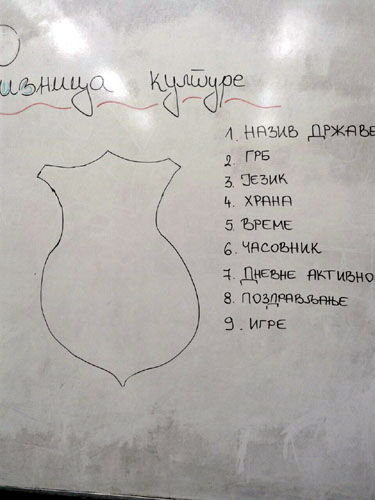 културе
1. НАЗИВ ДРЖАВЕ
2. ГРБ
3. ЈЕЗИК
4. ХРАНА
5. ВРЕМЕ
6. ЧАСОВНИК
7. ДНЕВНЕ АКТИВНО
8. ПОЗДРАВЉАЊЕ
9. ИГРЕ